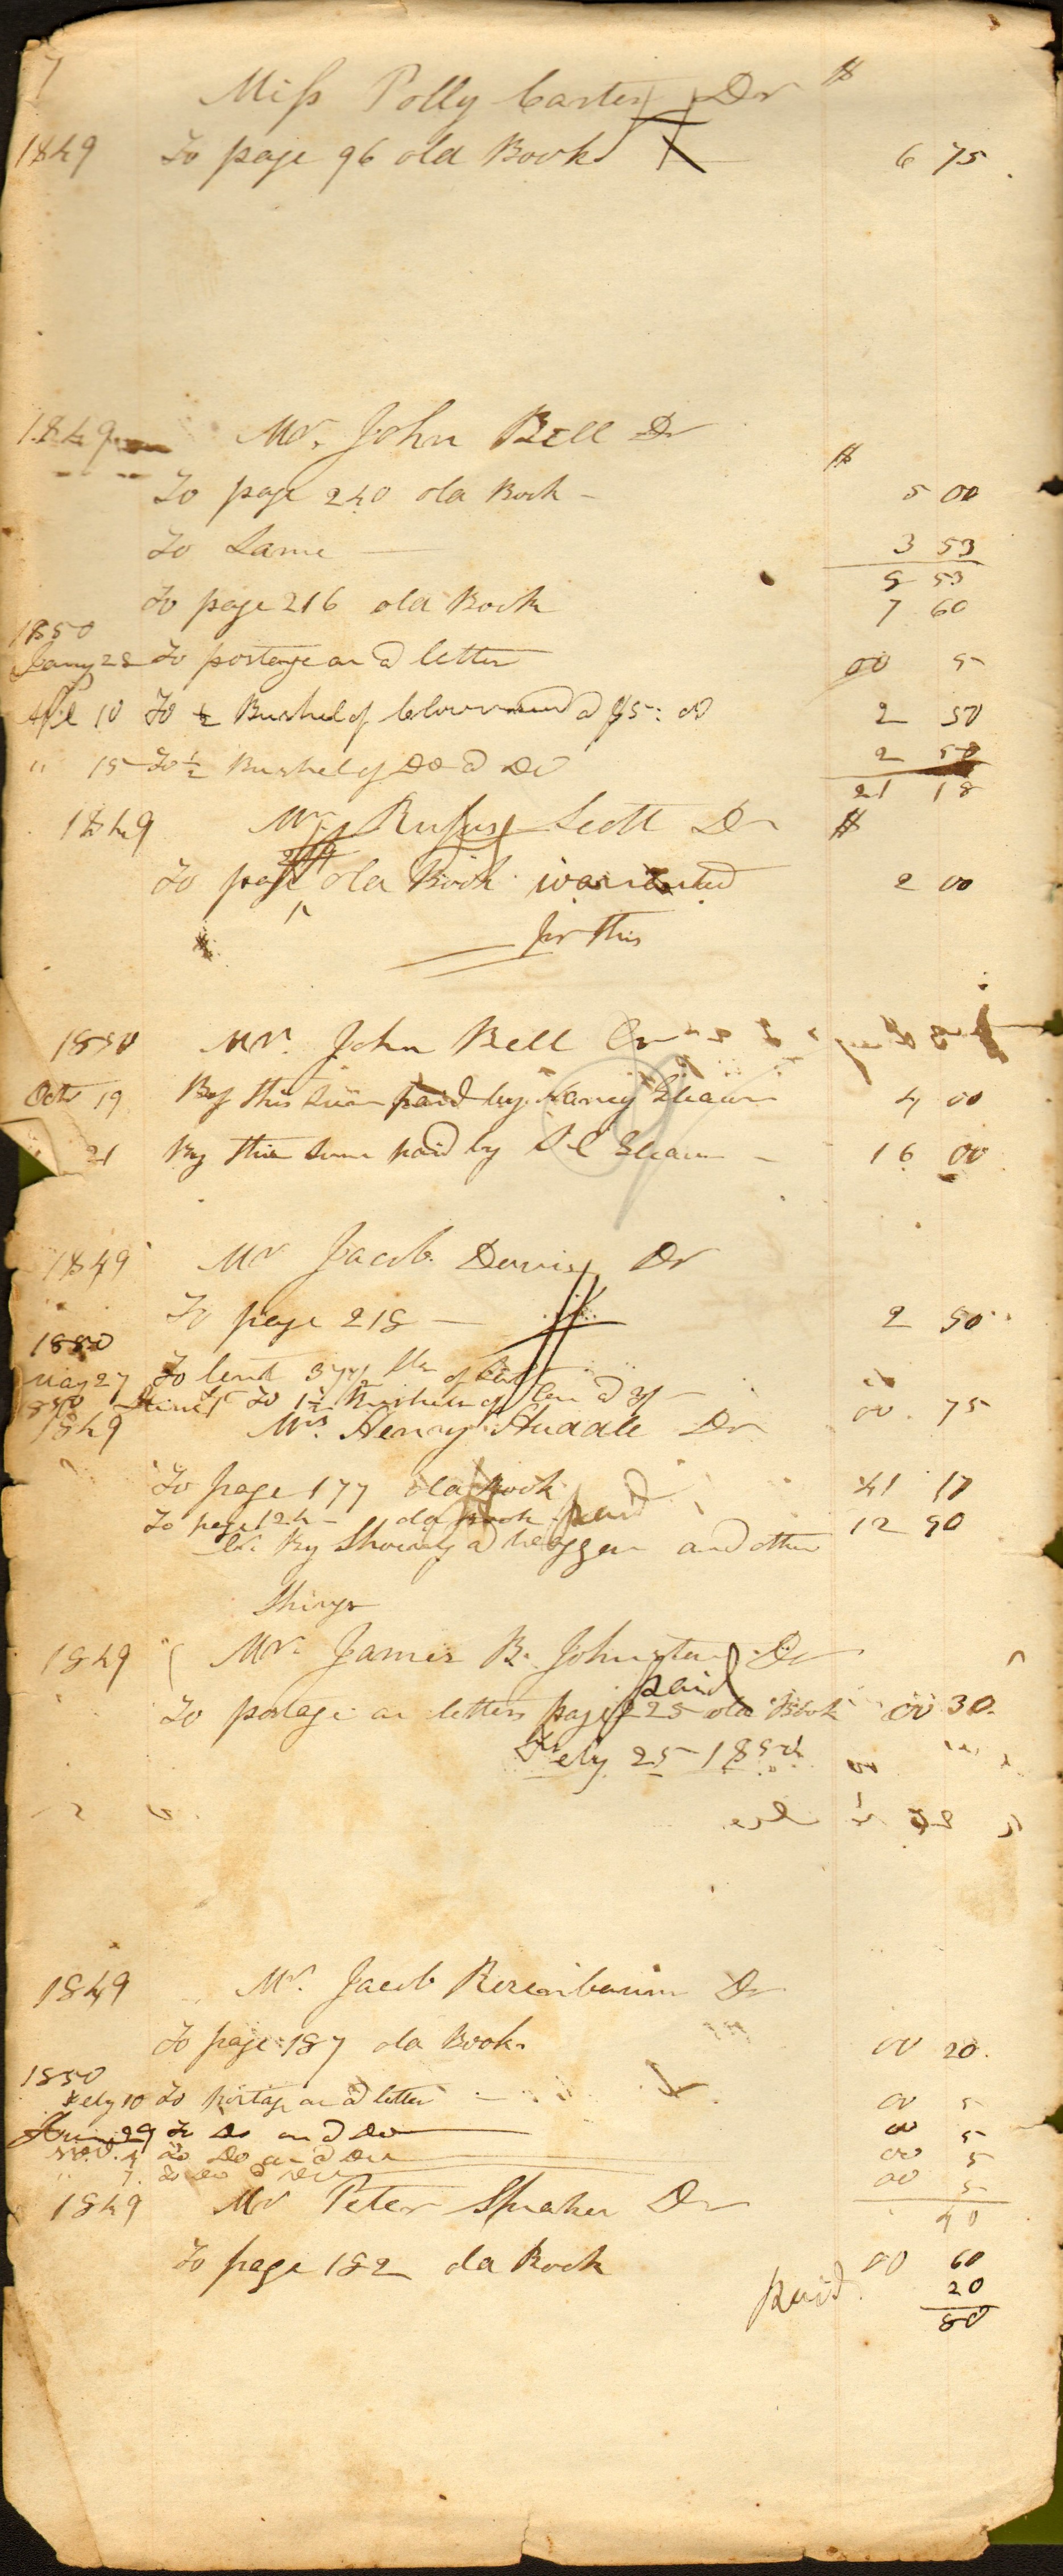 7
Miss Polly Carter Dr $
1849 To page 96 old Book 6 75
1849 Mr. John Bell Dr
$
To page 240 old Book - 5 00
To Same 3 53
8 53
To page 216 old Book 7 60
1850
Jany 28 To postage on a letter 00 5
Apl 10 To ½ Bushel of Clover seed @ $5: 00 2 50
" 15 To ½ Bushel of Do @ Do 2 50
21 18
1849 Mr Rufus Scott Dr $
To page old Book warrented 2 00
for this
1850 Mr. John Bell Cr
Octr 19 By this sum paid by Nancy 4 00
21 By this sum paid by - 16 00
1849 Mr Jacob Davis Dr
To page 218 - 2 50
1850
May 27 To lent 377 lbs of
1850 To 1½ Bushels of 00 75
1849 Mr. Henry Huddle Dr
To page 177 old Book 41 17
To page 124 - old Book paid 12 90
Cr. By Shoeing a waggon and other
things
1849 Mr. James B. Johnston Dr
paid
To postage on letters page 225 old Book 00 30
25 185
1849 Mr. Jacob Rosenbaum Dr
To page 187 old Book. 00 20
1850
Feby 10 To postage on a letter - 00 5
29 To Do on a Do 00 5
Nov. 4 To Do on a Do 00 5
" 7. To Do a Do 00 5
40
1849 Mr Peter Spraker Dr
To page 182 old Book 00 60
paid 20
80